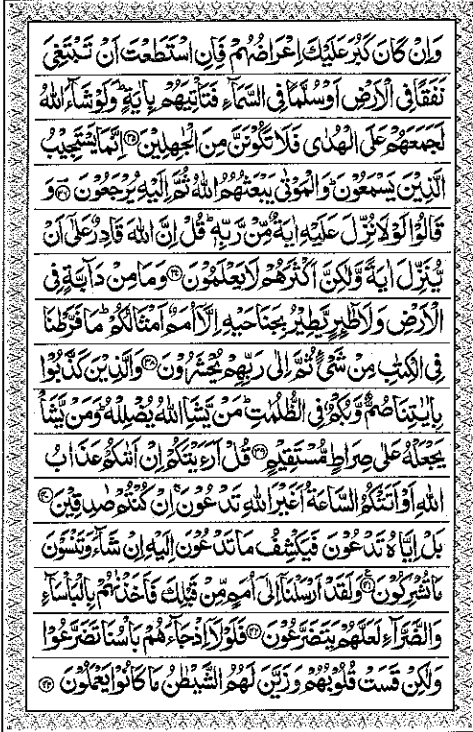 وَاِنْ كَانَ كَبُرَ عَلَيْكَ اِعْرَاضُهُمْ فَاِنِ اسْتَطَعْتَ اَنْ تَبْتَغِيَ
نَفَقًا فِي الْاَرْضِ اَوْ سُلَّمًا فِي السَّمَآءِ فَتَاْتِيَهُمْ بِاٰيَةٍ ؕ وَلَوْ شَآءَ اللّٰهُ
لَجَمَعَهُمْ عَلَى الْهُدٰى فَلَا تَكُوْنَنَّ مِنَ الْجٰهِلِيْنَ ﴿۳۵﴾ اِنَّمَا يَسْتَجِيْبُ
الَّذِيْنَ يَسْمَعُوْنَ ؕ وَالْمَوْتٰى يَبْعَثُهُمُ اللّٰهُ ثُمَّ اِلَيْهِ يُرْجَعُوْنَ ﴿۳۶﴾ وَ
قَالُوْا لَوْلَا نُزِّلَ عَلَيْهِ اٰيَةٌ مِّنْ رَّبِّهٖ ؕ قُلْ اِنَّ اللّٰهَ قَادِرٌ عَلٰٓى اَنْ
يُّنَزِّلَ اٰيَةً وَّلٰكِنَّ اَكْثَرَهُمْ لَا يَعْلَمُوْنَ ﴿۳۷﴾ وَمَا مِنْ دَآبَّةٍ فِي
الْاَرْضِ وَلَا طٰٓئِرٍ يَّطِيْرُ بِجَنَاحَيْهِ اِلَّاۤ اُمَمٌ اَمْثَالُكُمْ ؕ مَا فَرَّطْنَا
فِي الْكِتٰبِ مِنْ شَيْءٍ ثُمَّ اِلٰى رَبِّهِمْ يُحْشَرُوْنَ ﴿۳۸﴾ وَالَّذِيْنَ كَذَّبُوْا
بِاٰيٰتِنَا صُمٌّ وَّبُكْمٌ فِي الظُّلُمٰتِ ؕ مَنْ يَّشَاِ اللّٰهُ يُضْلِلْهُ ؕ وَمَنْ يَّشَاْ
يَجْعَلْهُ عَلٰى صِرَاطٍ مُّسْتَقِيْمٍ ﴿۳۹﴾ قُلْ اَرَءَيْتَكُمْ اِنْ اَتٰىكُمْ عَذَابُ
اللّٰهِ اَوْ اَتَتْكُمُ السَّاعَةُ اَغَيْرَ اللّٰهِ تَدْعُوْنَ ۚ اِنْ كُنْتُمْ صٰدِقِيْنَ ﴿۴۰﴾
بَلْ اِيَّاهُ تَدْعُوْنَ فَيَكْشِفُ مَا تَدْعُوْنَ اِلَيْهِ اِنْ شَآءَ وَتَنْسَوْنَ
مَا تُشْرِكُوْنَ ﴿۴۱﴾ وَلَقَدْ اَرْسَلْنَاۤ اِلٰٓى اُمَمٍ مِّنْ قَبْلِكَ فَاَخَذْنٰهُمْ بِالْبَاْسَآءِ
وَالضَّرَّآءِ لَعَلَّهُمْ يَتَضَرَّعُوْنَ ﴿۴۲﴾ فَلَوْلَاۤ اِذْ جَآءَهُمْ بَاْسُنَا تَضَرَّعُوْا
وَلٰكِنْ قَسَتْ قُلُوْبُهُمْ وَزَيَّنَ لَهُمُ الشَّيْطٰنُ مَا كَانُوْا يَعْمَلُوْنَ ﴿۴۳﴾